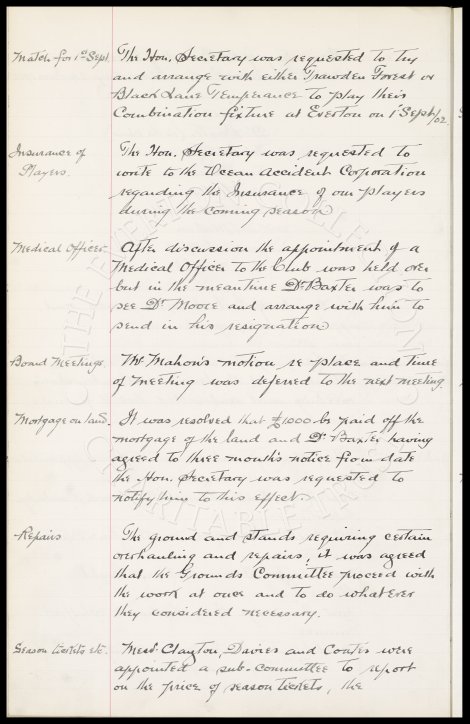 Match for 1st Sept. The Hon. Secretary was requested to try
and arrange with either Trawden Forest or
Black Lane Temperance to play their
Combination fixture at Everton on 1st Sept/02.
Insurance of The Hon. Secretary was requested to
Players. write to the Ocean Accident Corporation
regarding the Insurance of our players
during the coming season
Medical Officer After discussion the appointment of a
Medical Officer to the Club was held over
but in the meantime Dr Baxter was to
see Dr Moore and arrange with him to
send in his resignation
Board Meetings Mr Mahon's motion re place and time
of meeting was deferred to the next meeting.
Mortgage on land. It was resolved that £1000 be paid off the
mortgage of the land and Dr Baxter having
agreed to three month's notice from date
the Hon. Secretary was requested to
notify him to this effect
Repairs The ground and stands requiring certain
overhauling and repairs, it was agreed
that the Grounds Committee proceed with
the work at once and to do whatever
they considered necessary.
Season tickets etc. Messrs Clayton, Davies and Coates were
appointed a sub-committee to report
on the price of season tickets, the
THE EVERTON
CHARITABLE TRUST